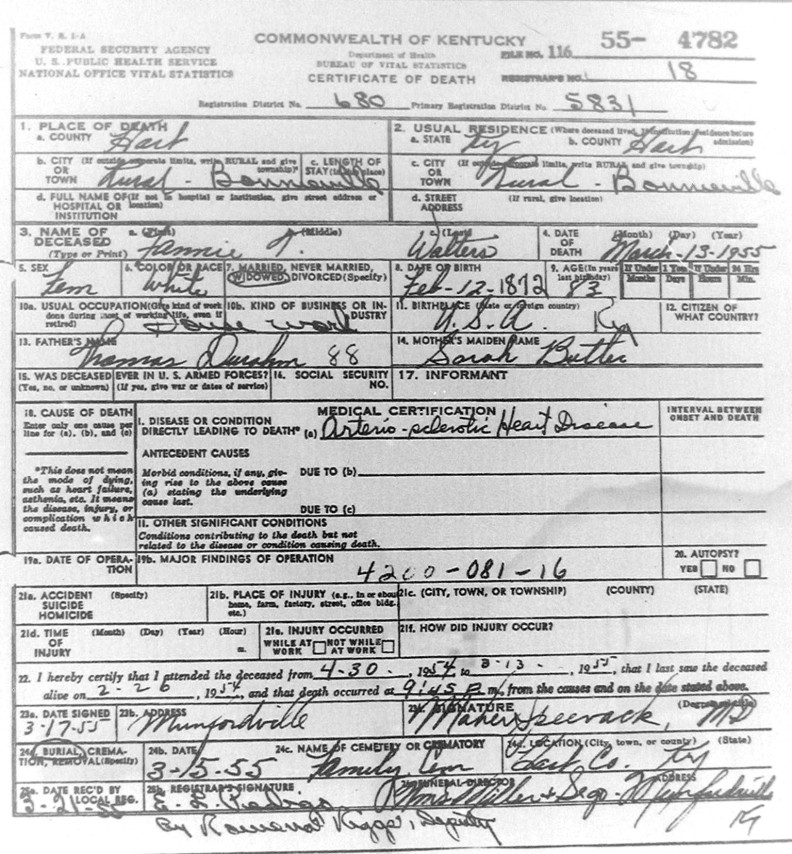 Form V. S. 1-A
FEDERAL SECURITY AGENCY
U. S. PUBLIC HEALTH SERVICE
NATIONAL OFFICE VITAL STATISTICS
COMMONWEALTH OF KENTUCKY
Department of Health
BUREAU OF VITAL STATISTICS
CERTIFICATE OF DEATH
FILE NO. 116 55- 4782
REGISTRAR'S NO. 18
Registration District No. 680 Primary Registration District No. 5831
1. PLACE OF DEATH
a. COUNTY Hart
2. USUAL RESIDENCE (Where deceased lived, If institution: residence before admission)
a. STATE Ky b. COUNTY Hart
b. CITY (If outside corporate limits, write RURAL and give township)
OR TOWN Rural - Bonnieville
c. LENGTH OF STAY (in this place)
c. CITY (If outside corporate limits, write RURAL and give township)
OR TOWN Rural - Bonnieville
d. FULL NAME OF (If not in hospital or institution, give street address or location)
HOSPITAL OR INSTITUTION
d. STREET ADDRESS (If rural, give location)
3. NAME OF DECEASED (Type or Print)
a. (First) (Middle) c. (Last)
Fannie Walters
4. DATE OF DEATH (Month) (Day) (Year)
March-13-1955
5. SEX Fem
6. COLOR OR RACE White
7. MARRIED, NEVER MARRIED, WIDOWED, DIVORCED (Specify)
8. DATE OF BIRTH Feb-12-1872
9. AGE (In years last birthday) 83
If Under 1 Year Months Days
If Under 24 Hrs Hours Min.
10a. USUAL OCCUPATION (Give kind of work done during most of working life, even if retired) House work
10b. KIND OF BUSINESS OR INDUSTRY
11. BIRTHPLACE (State or foreign country) U.S.A. Ky
12. CITIZEN OF WHAT COUNTRY?
13. FATHER'S NAME Thomas 88
14. MOTHER'S MAIDEN NAME Sarah Butler
15. WAS DECEASED EVER IN U. S. ARMED FORCES?
(Yes, no, or unknown) (If yes, give war or dates of service)
16. SOCIAL SECURITY NO.
17. INFORMANT
18. CAUSE OF DEATH
Enter only one cause per line for (a), (b), and (c)
MEDICAL CERTIFICATION
INTERVAL BETWEEN ONSET AND DEATH
I. DISEASE OR CONDITION
DIRECTLY LEADING TO DEATH* (a) Arterio-sclerotic Heart Disease
*This does not mean the mode of dying, such as heart failure, asthenia, etc. It means the disease, injury, or complication which caused death.
ANTECEDENT CAUSES
Morbid conditions, if any, giving rise to the above cause (a) stating the underlying cause last.
DUE TO (b)
DUE TO (c)
II. OTHER SIGNIFICANT CONDITIONS
Conditions contributing to the death but not related to the disease or condition causing death.
19a. DATE OF OPERATION
19b. MAJOR FINDINGS OF OPERATION
4200-081-16
20. AUTOPSY?
YES NO
21a. ACCIDENT SUICIDE HOMICIDE (Specify)
21b. PLACE OF INJURY (e.g., in or about home, farm, factory, street, office bldg. etc.)
21c. (CITY, TOWN, OR TOWNSHIP) (COUNTY) (STATE)
21d. TIME OF INJURY (Month) (Day) (Year) (Hour) m.
21e. INJURY OCCURRED
WHILE AT WORK NOT WHILE AT WORK
21f. HOW DID INJURY OCCUR?
22. I hereby certify that I attended the deceased from 4-30, 1954 to 3-13-, 1955, that I last saw the deceased
alive on 2-26, 1954, and that death occurred at 9:45 P m., from the causes and on the date stated above.
23a. DATE SIGNED 3-17-55
23b. ADDRESS Munfordville
SIGNATURE (Degree or title)
MD
24a. BURIAL, CREMATION, REMOVAL (Specify)
24b. DATE 3-15-55
24c. NAME OF CEMETERY OR CREMATORY Family Cem
24d. LOCATION (City, town, or county) (State) Hart Co. Ky
25a. DATE REC'D BY LOCAL REG. 3-21-
25b. REGISTRAR'S SIGNATURE
FUNERAL DIRECTOR ADDRESS
Munfordville
Ky
By Deputy